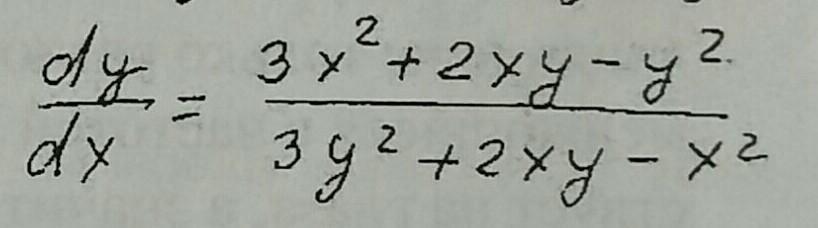 dy/dx = (3x² + 2xy - y²)/(3y² + 2xy - x²)